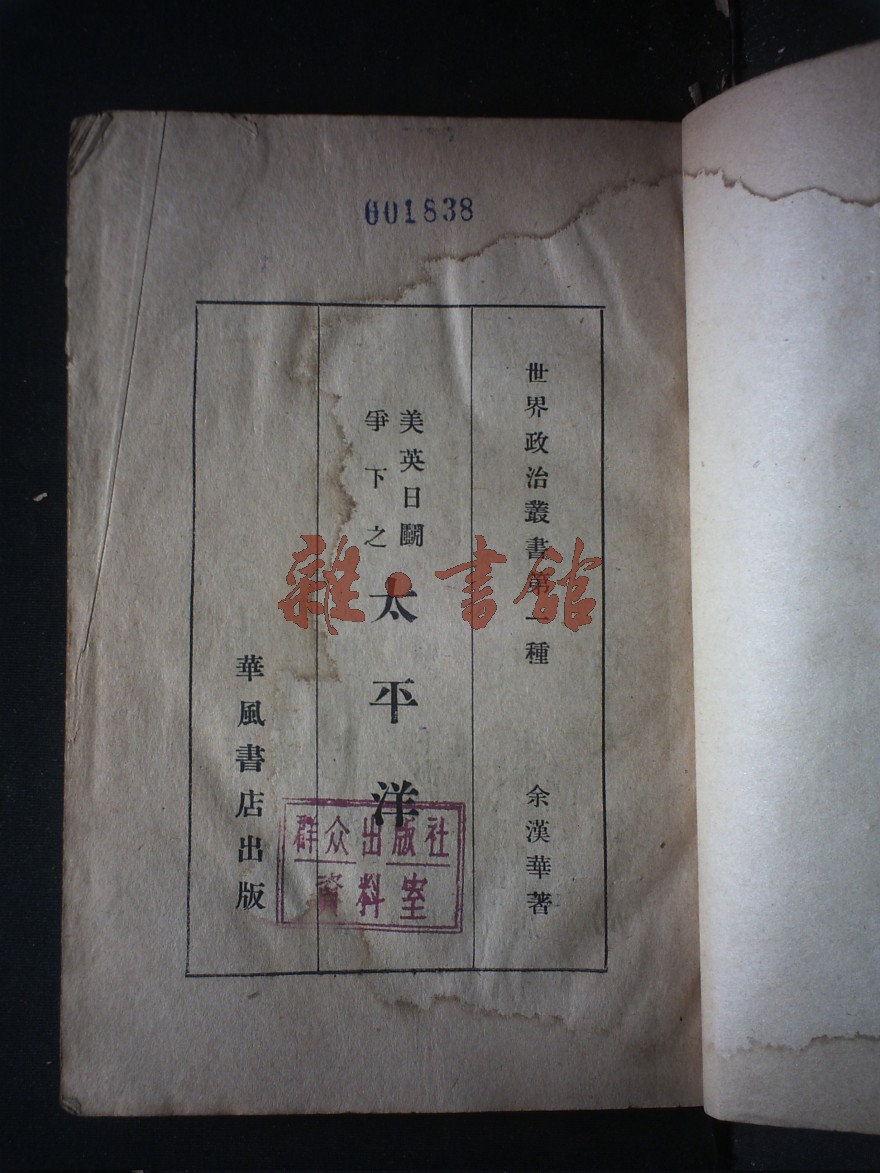 001838
世界政治叢書第一種
余漢華著
美英日鬭
爭下之
太平洋
華風書店出版
群众出版社
資料室
雜·書館